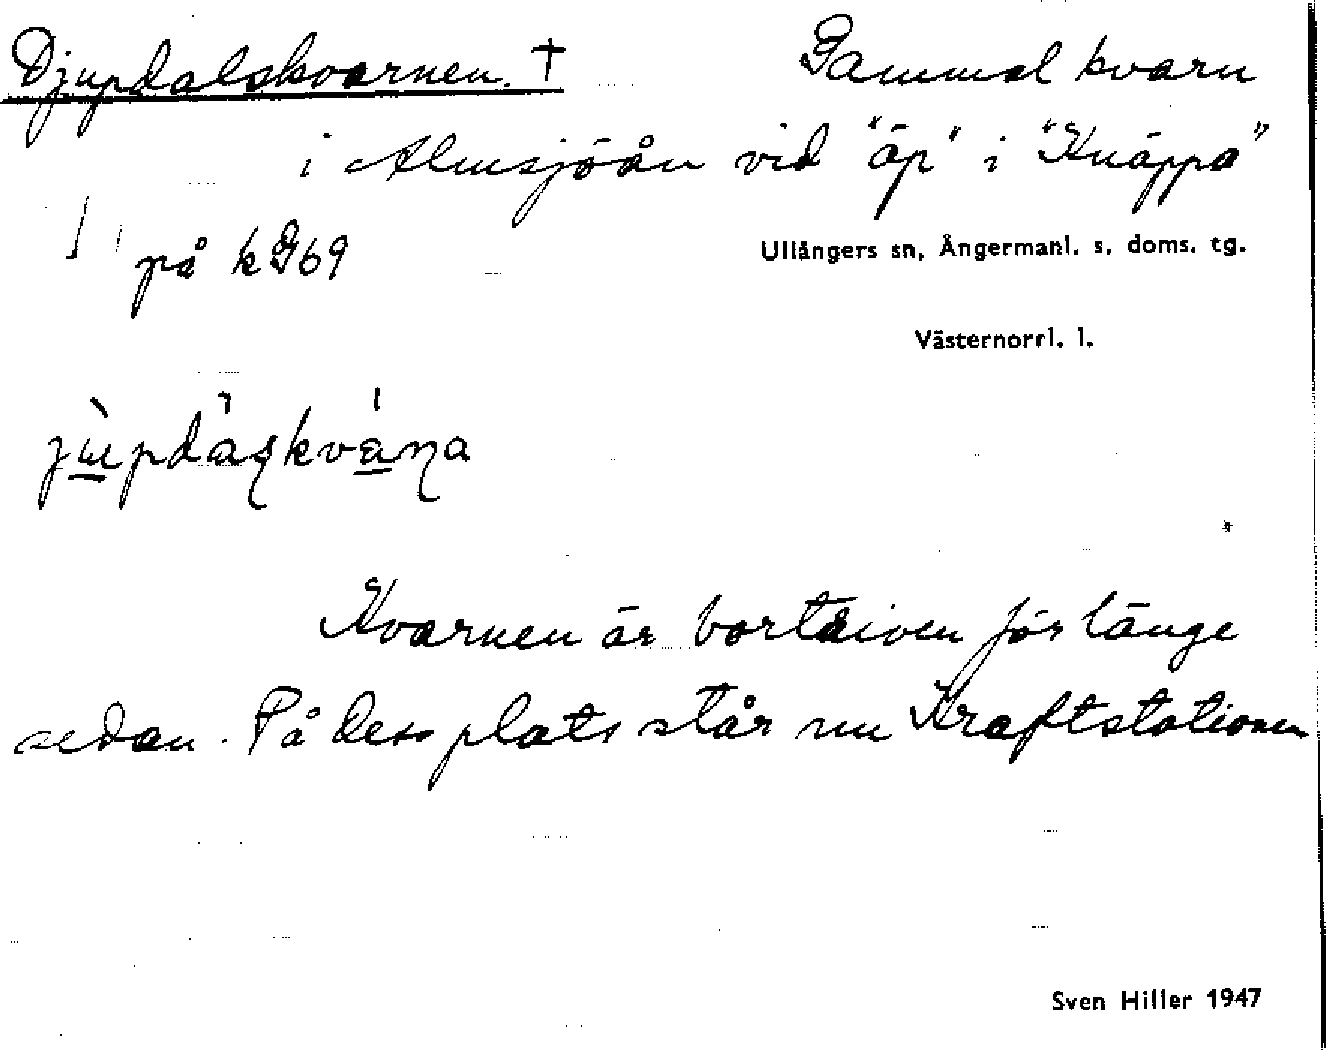 Djupdalskvarnen. † Gammal kvarn
i Almsjöån vid "äp" i "Knäppa"
på k G69
Ullångers sn, Ångermanl. s. doms. tg.
Västernorrl. l.
Kvarnen är bortriven för länge
sedan. På dess plats står nu Kraftstationen
Sven Hiller 1947